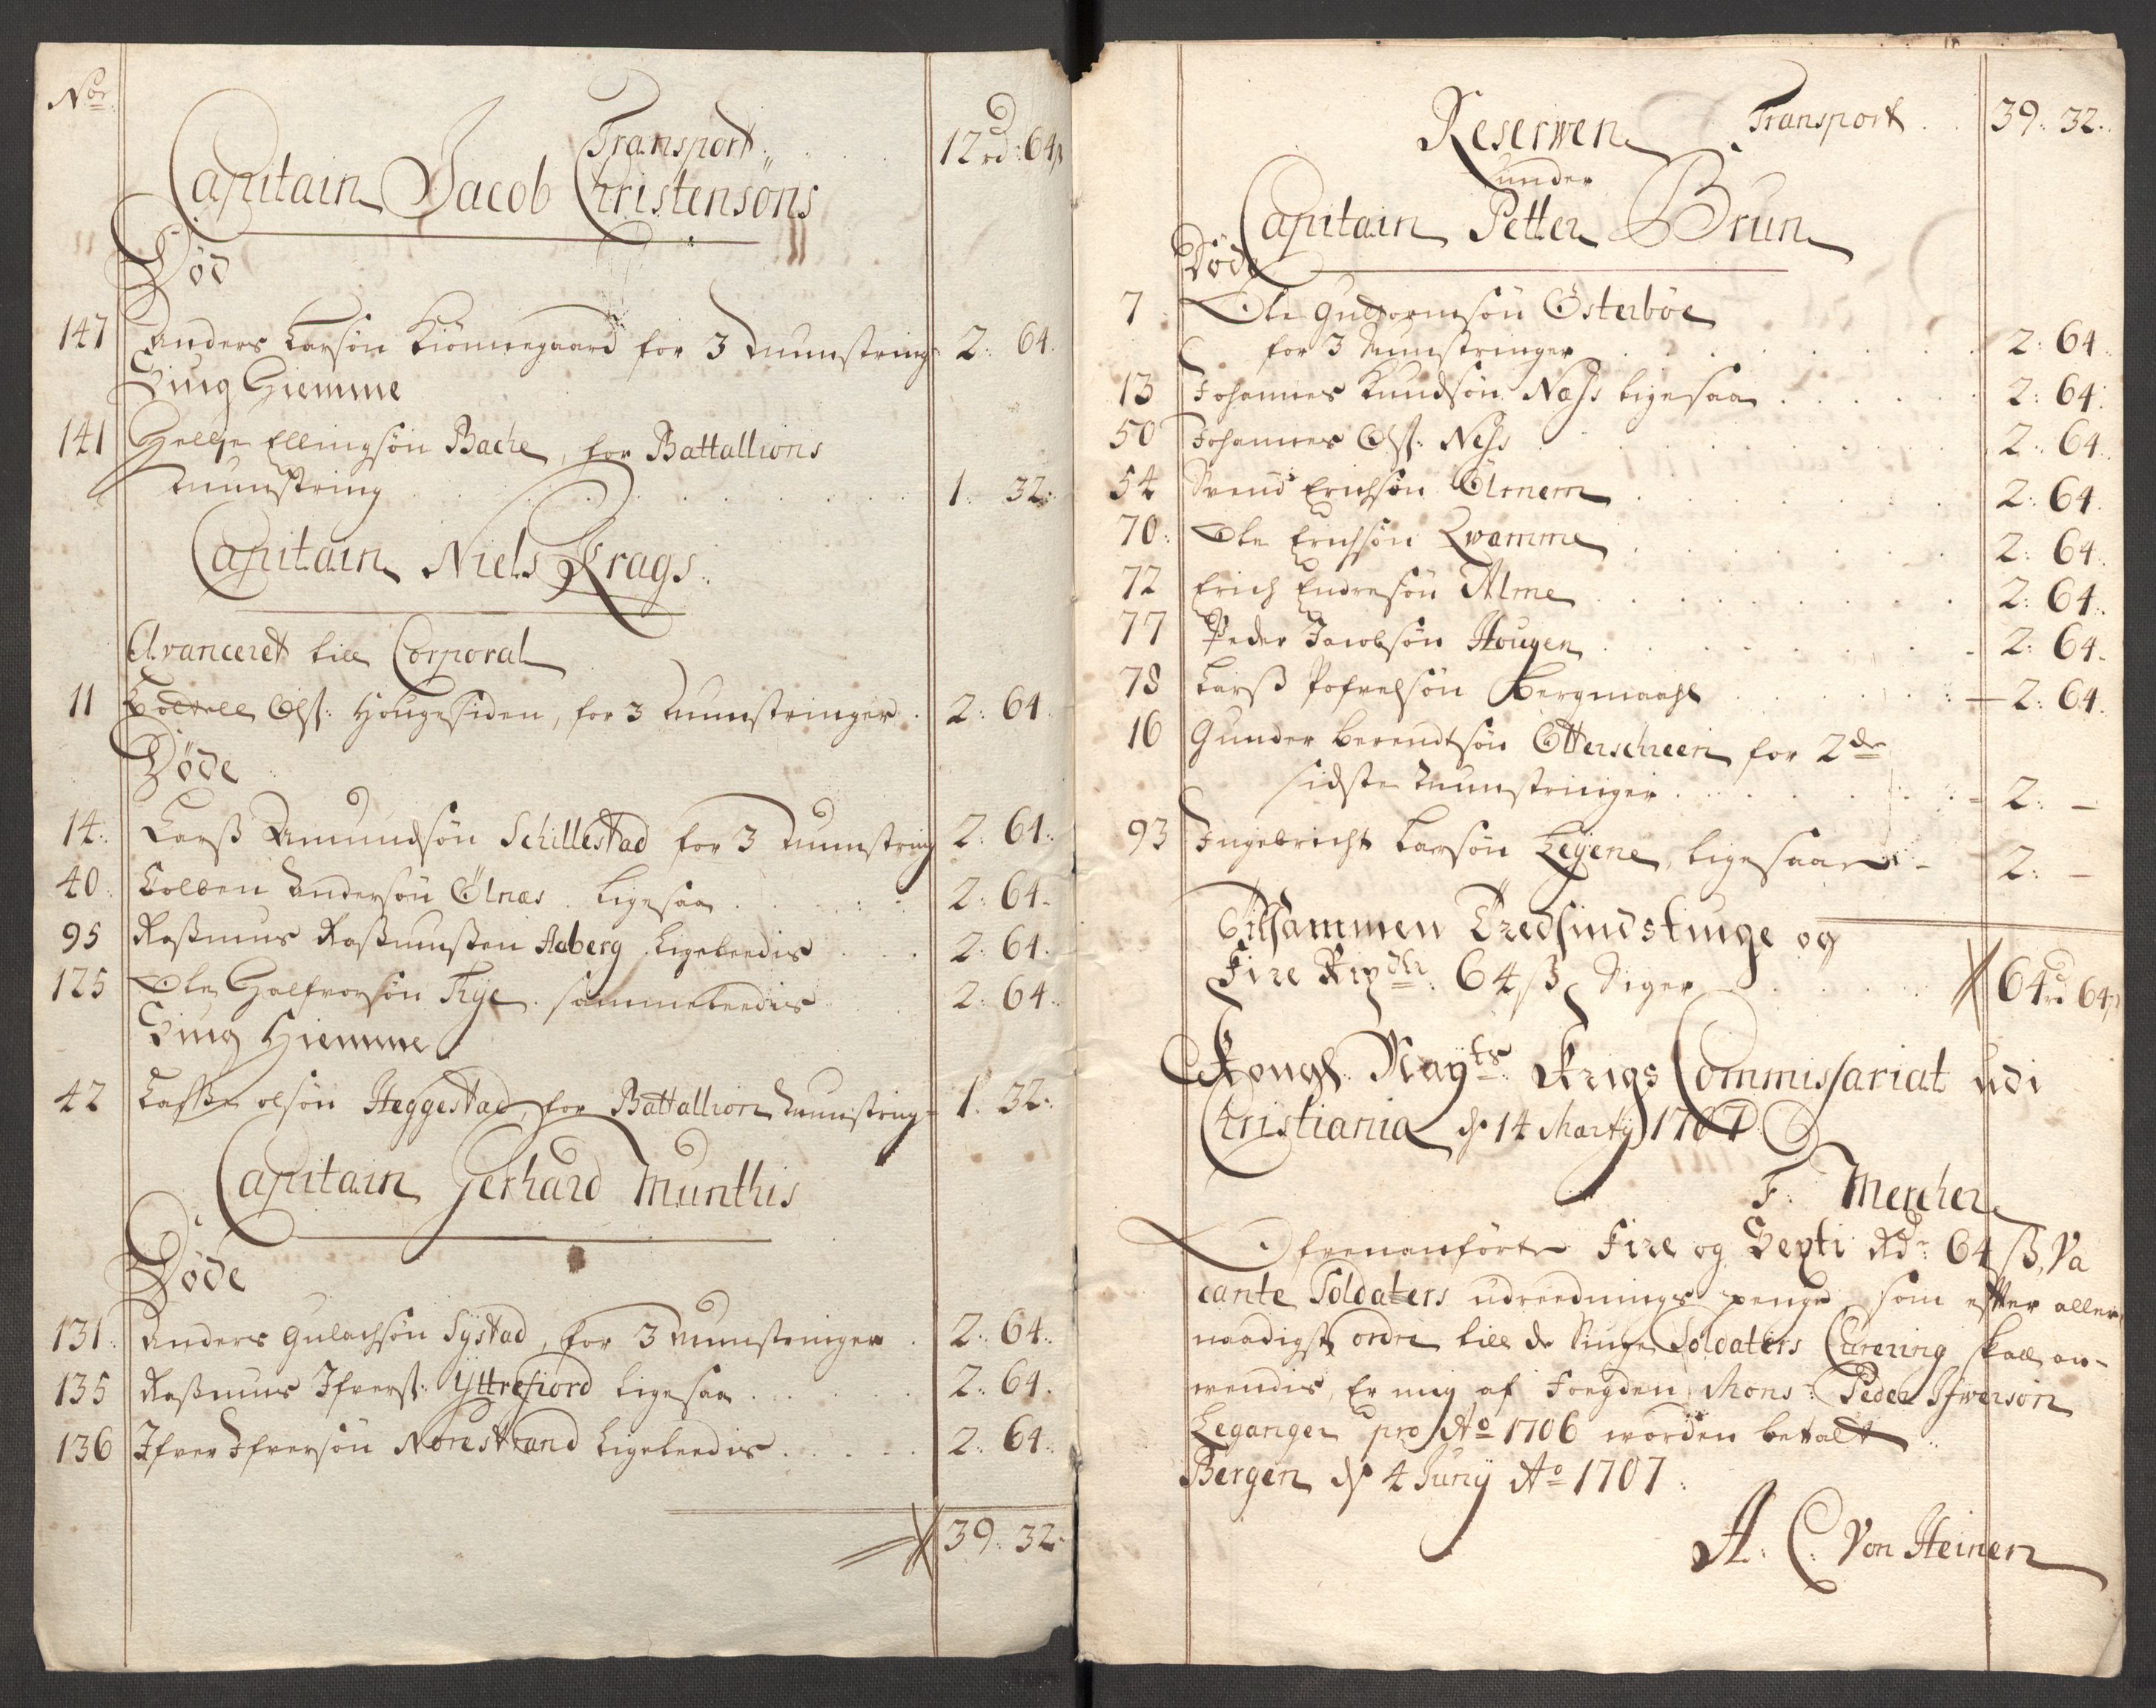 No.
Transport . . . . 12 rd: 64 ß
Capitain Jacob Christensöns
Död
147 Anders Larsön Kiönnegaard for 3 Munstring 2: 64.
Siug Hiemme
141 Hellge Ellingsön Bache, for Battallions
Munstring . . . . 1: 32:
Capitain Niels Krags.
Avanceret till Corporal
11 Olß: Hougesiden, for 3 Munstringer . 2: 64
Döde
14: Larß Amundsön Schillestad for 3 Munstring 2: 64:
40: Colben Andersön Ölnæs . ligesaa . . . 2: 64.
95 Raßmus Raßmussen Aaberg ligeleedis . . . 2: 64.
125 Ole Halfvorsön Týe . sammeleedis . . 2: 64.
Siug Hiemme
42 Lasße olsön Heggestad, for Battallion Munstring 1. 32:
Capitain Gerhard Munthis
Döde
131: Anders Gulachsön Systad, for 3 Munstringer . 2: 64:
135 Raßmus Ifverß: Yttrefiord ligesaa . . . 2: 64.
136 Ifver Ifversön Nörestrand ligeleedis . . . 2: 64.
39: 32
Reserven Transport . . 39: 32.
under
Capitain Petter Brun
Döde
7 Ole Guldormsön Österböe
for 3 Munstringer . . . . 2: 64.
13 Johannes Knudsön Næss ligesaa . . . . 2: 64.
50 Johannes Olß: Neß . . . . 2: 64.
54 Svend Erichsön Ölmem . . . . 2: 64.
70: Ole Erichsön Qvamme . . . . 2: 64.
72 Erich Endresön Alme . . . . 2: 64.
77 Peder Jacobsön Hougen . . . . 2: 64.
78 Larß Pofvelsön Bergmaahl . . . . 2: 64.
16 Gunder Berendtsön Otterscheen for 2de
sidste Munstringer . . . . 2: –
93 Ingebricht Larsön Legene, ligesaa 2: –
Tilsammen Tredsindstiuge og
Fire Rixdlr: 64 ß Siger . . . . 64 rd 64 ß
Kongl: Mayts: Krigs Commissariat udi
Christiania d. 14 Martij 1707
F: Mercher
Ofvenanförte Fire og Sexti Rdr: 64 ß, Va
cante Soldaters udreednings penge som efter aller
naadigste ordre till de Siuge Soldaters Curering skall an-
wendis, Er mig af Foegden Mons: Peder Ifwersön
Leganger pro Ao 1706 worden betalt ..
Bergen d. 4 Junij Ao 1707.
A. C. Von Heinen